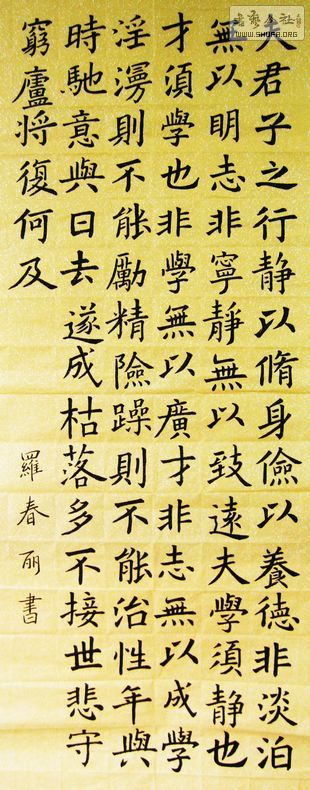 夫君子之行静以脩身儉以養德非淡泊
無以明志非寧静無以致遠夫學須静也
才須學也非學無以廣才非志無以成學
淫漫則不能勵精險躁則不能治性年與
時馳意與日去遂成枯落多不接世悲守
窮廬将復何及
羅春丽書
WWW.SHUFA.ORG